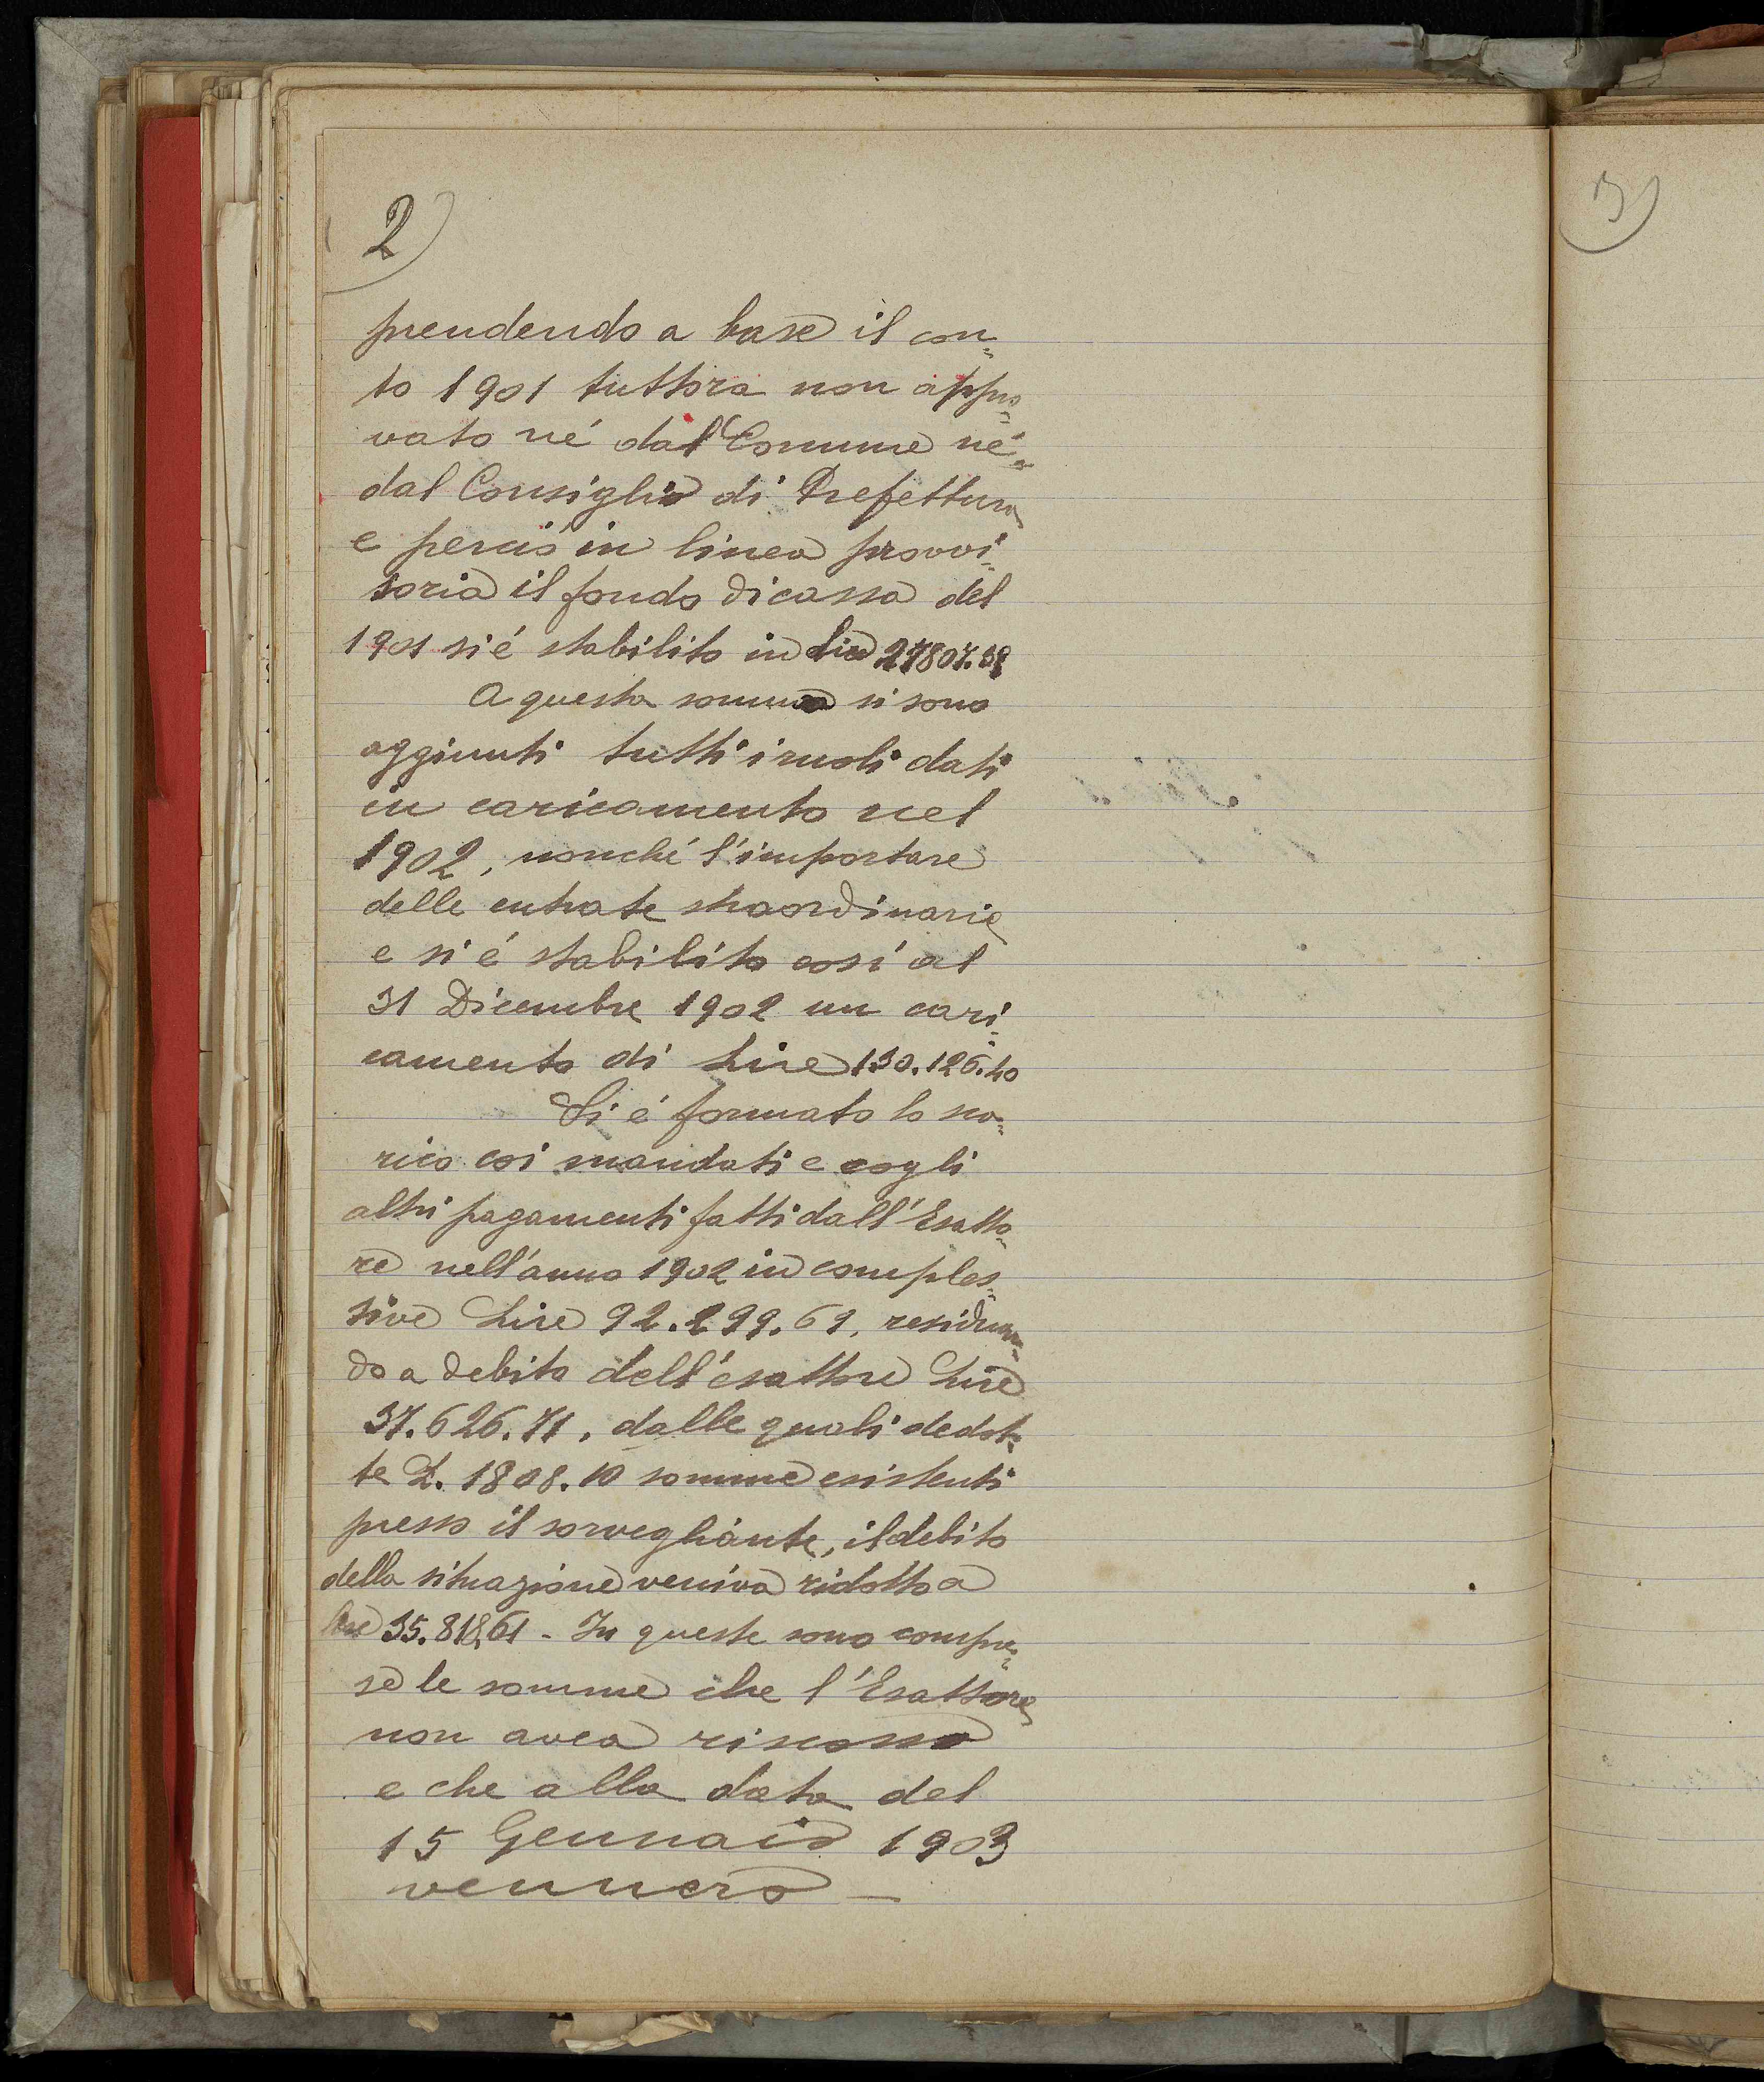 2)
prendendo a base il con=
to 1901 tuttora non appro=
vato né dal Comune né
dal Consiglio di Prefettura
e perció in linea provvi=
soria il fondo di cassa del
1901 si é stabilito in Lire 27807.39
A questa somma si sono
aggiunti tutti i ruoli dati
in caricamento nel
1902, nonché l'importare
delle entrate straordinarie
e si é stabilito cosí al
31 Dicembre 1902 un cari=
camento di Lire 130.126.40
Si é formato lo sca=
rico coi mandati e cogli
altri pagamenti fatti dall'Esatto=
re nell'anno 1902 in comples=
sive Lire 92.299.69, residuan=
do a debito dell'esattore Lire
37.626.71, dalle quali dedot=
te L. 1808.10 somme esistenti
presso il sorvegliante, il debito
della situazione veniva ridotto a
Lire 35.818,61 - In queste sono compre=
se le somme che l'Esattore
non avea riscosso
e che alla data del
15 Gennaio 1903
vennero —
3)